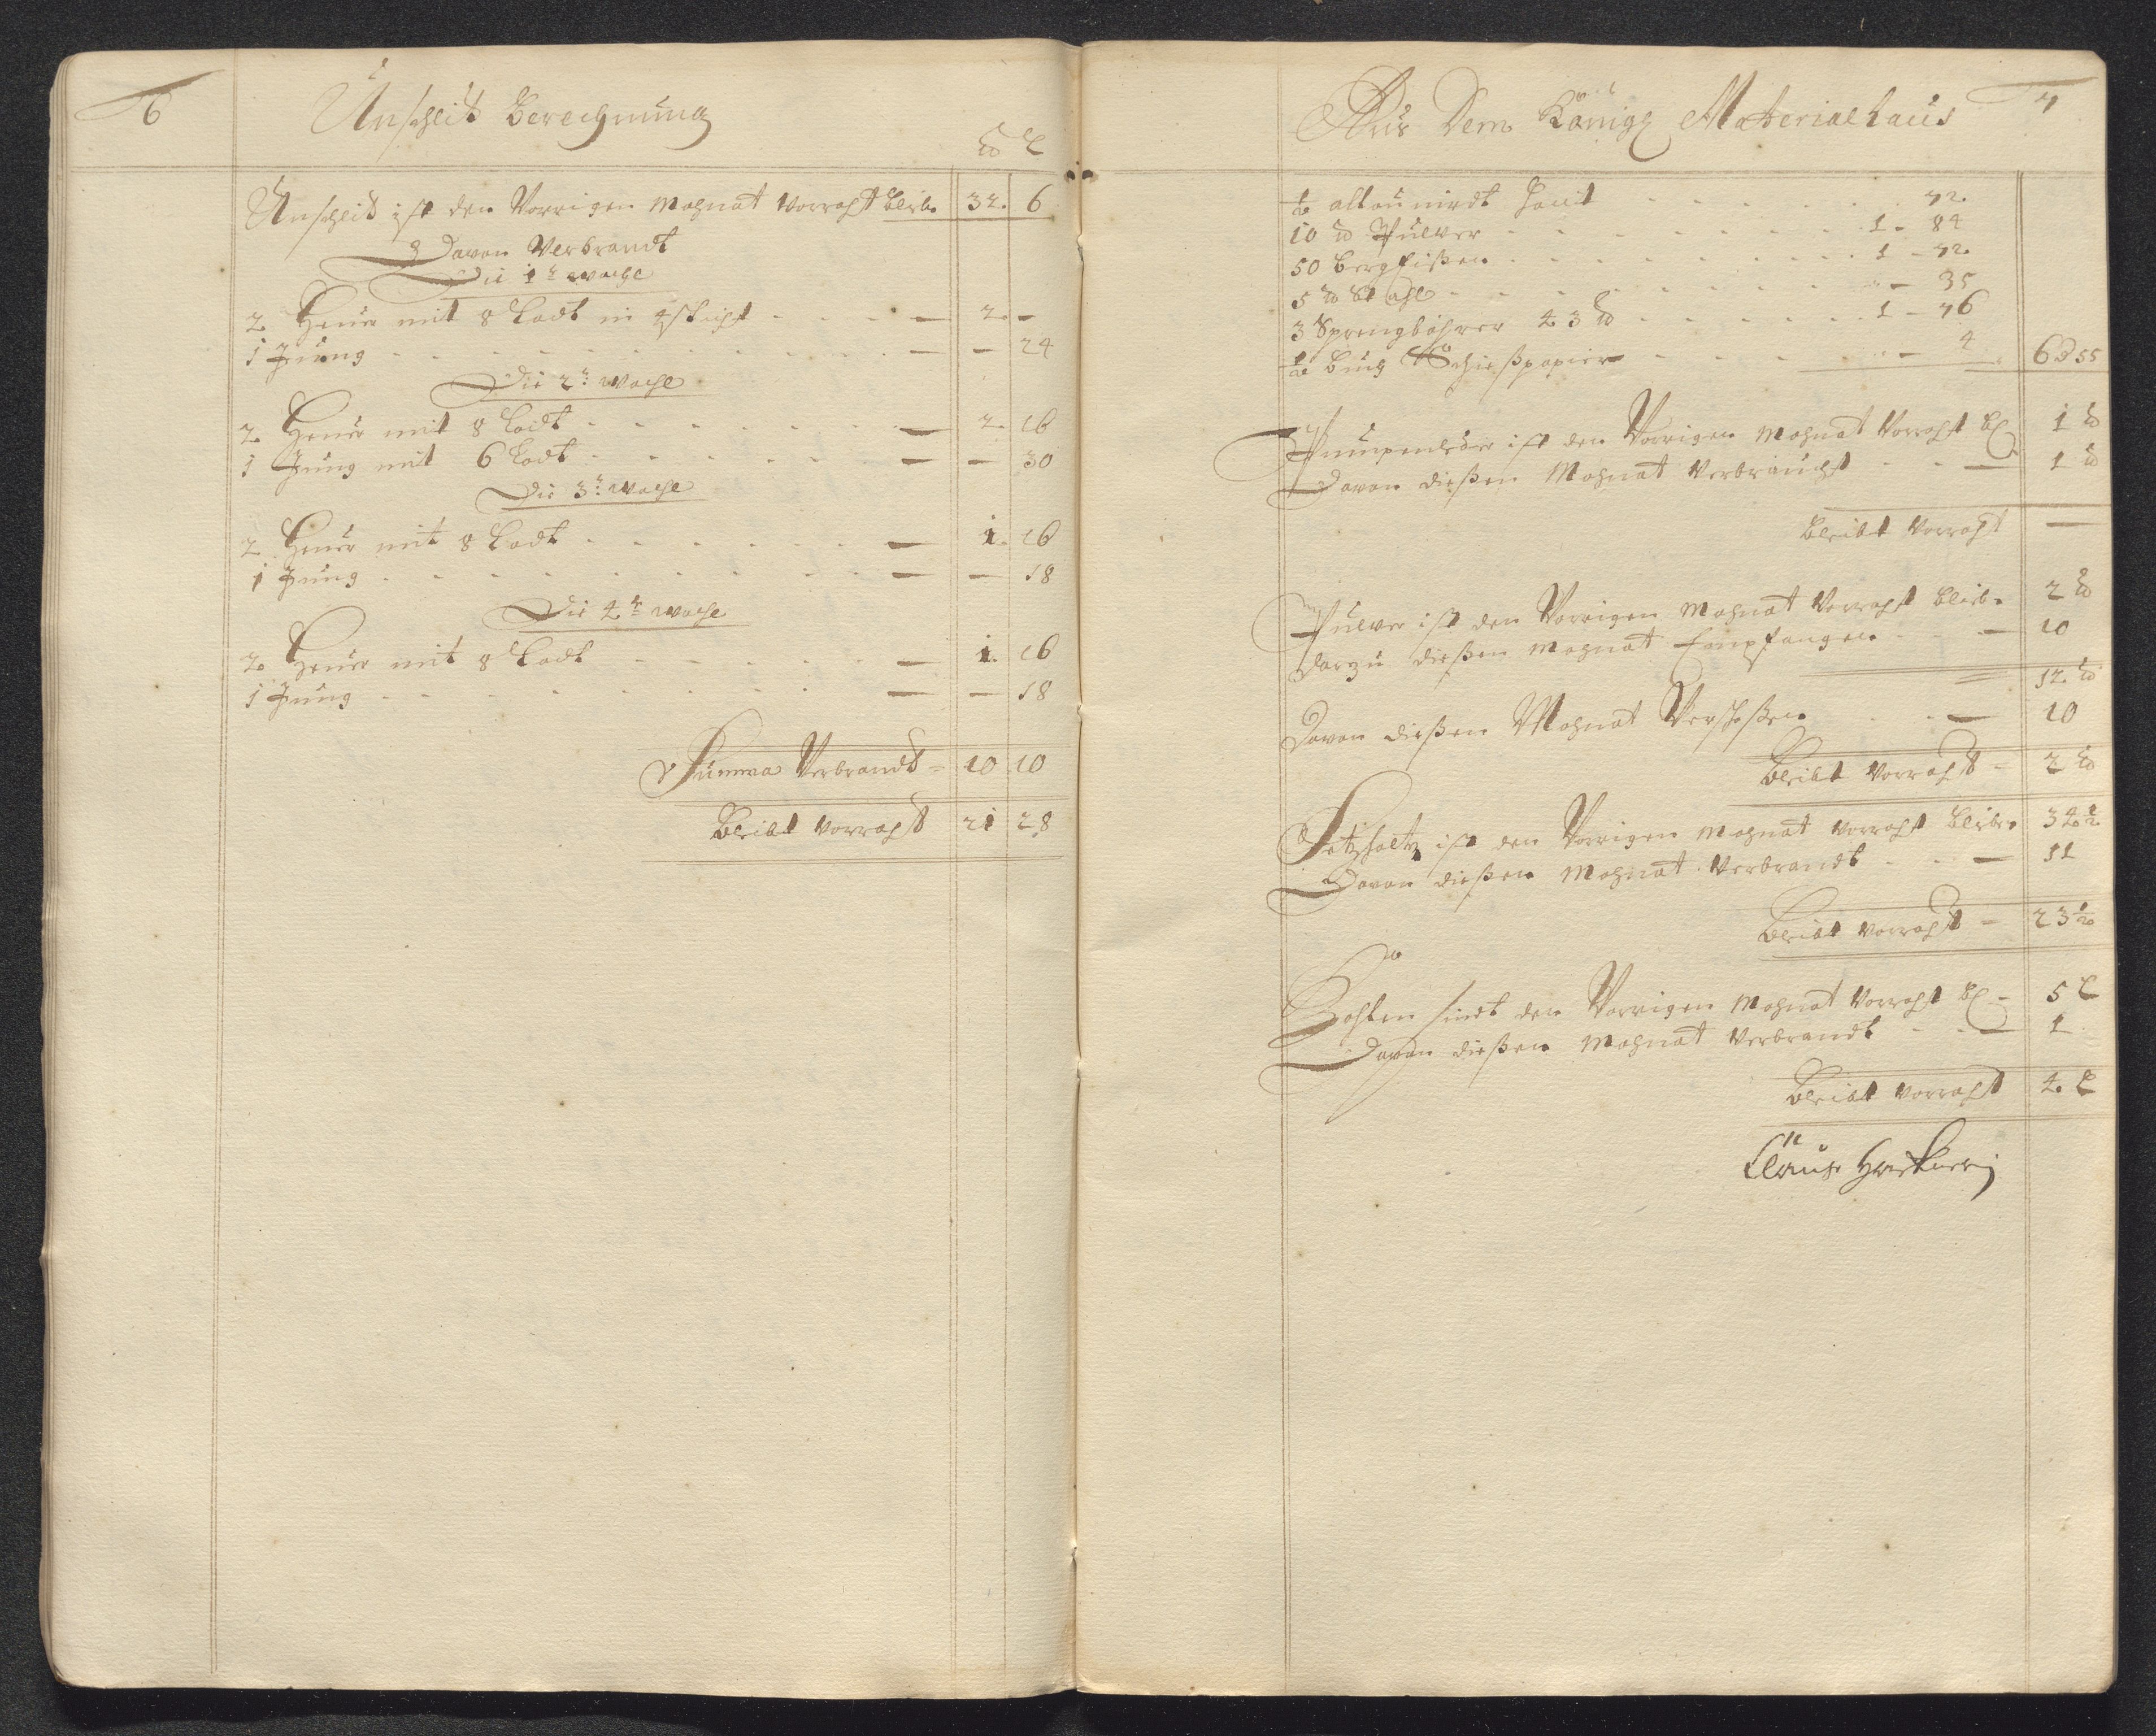 6
Unschlit Berechnung
℔ L
Unschlit ist den Vorrigen Mohnat Vorraht bleib. 32. 6
Davon Verbrandt
Die 1te Woche
2 Heüer mit 8 Lodt in 4 Schicht - - - 2. -
1 Jung - - - - - 24
Die 2te Woche
2 Heüer mit 8 Lodt - - - 2. 16
1 Jung mit 6 Lodt - - - - 30
Die 3te Woche
2 Heüer mit 8 Lodt - - - 1. 16
1 Jung - - - - 18
Die 4te Woche
2 Heüer mit 8 Lodt - - - 1. 16
1 Jung - - - - 18
Summa Verbrandt - 10 10
Bleibt Vorraht 21 28
Aus Dem Königl Materialhaus 7
½ allaunirdt Haut - - - 72
10 ℔ Pulver - - - 1 - 84
50 Bergeißen - - - 1 - 72
5 ℔ Stahl - - - 35
3 Sprengbohrer 43 ℔ - - - 1 - 76
½ Buch Schießpapier - - - 4 6 D 55
Pumpenleder ist den Vorrigen Mohnat Vorraht bl 1 ℔
Davon dießen Mohnat Verbraucht - - 1 ℔
Bleibt Vorraht —
Pulver ist den Vorrigen Mohnat Vorraht bleib. 2 ℔
Darzu dießen Mohnat Empfangen - - 10
12. ℔
Davon dießen Mohnat Verschoßen - - 10
Bleibt Vorraht - 2 ℔
Setzholtz ist den Vorrigen Mohnat Vorraht bleib. 34½
Davon dießen Mohnat Verbrandt - - 11
Bleibt Vorraht - 23½
Kohlen sindt den Vorrigen Mohnat Vorraht bl - 5 L
Davon dießen Mohnat Verbrandt - - 1
Bleibt Vorraht 4. L
Claus